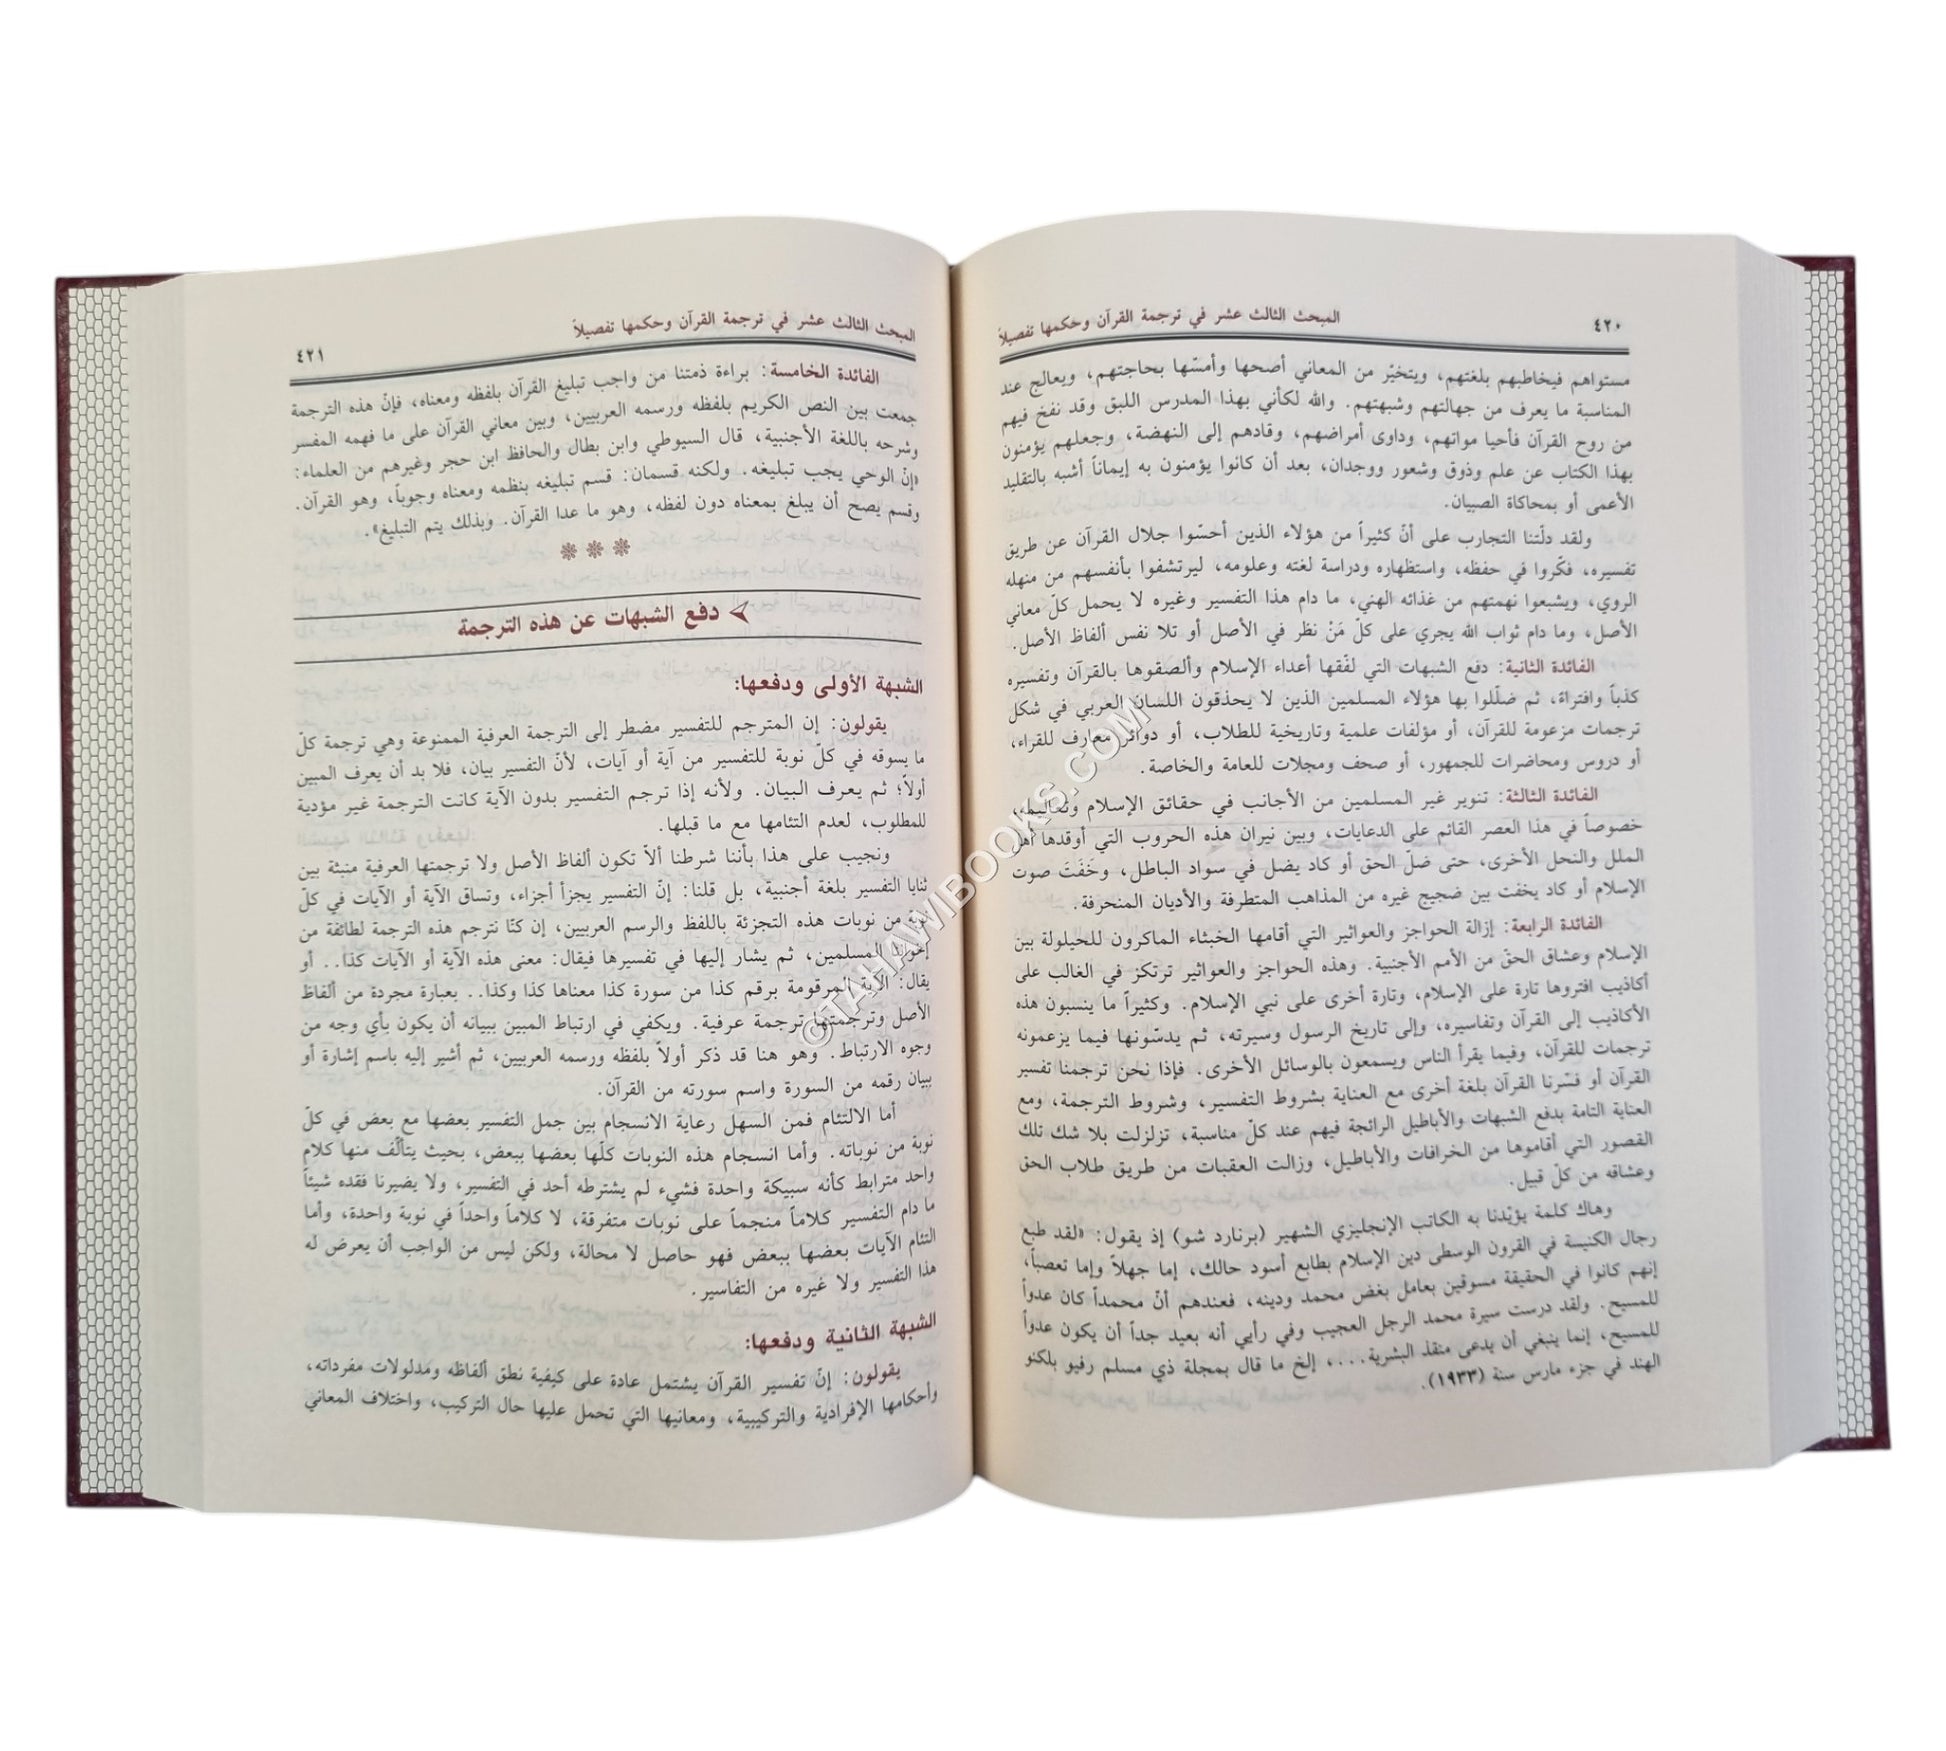 ٤٢٠
المبحث الثالث عشر في ترجمة القرآن وحكمها تفصيلاً
مستواهم فيخاطبهم بلغتهم، ويتخيّر من المعاني أصحها وأمسّها بحاجتهم، ويعالج عند
المناسبة ما يعرف من جهالتهم وشبهتهم. والله لكأني بهذا المدرس اللبق وقد نفخ فيهم
من روح القرآن فأحيا مواتهم، وداوى أمراضهم، وقادهم إلى النهضة، وجعلهم يؤمنون
بهذا الكتاب عن علم وذوق وشعور ووجدان، بعد أن كانوا يؤمنون به إيماناً أشبه بالتقليد
الأعمى أو بمحاكاة الصبيان.
ولقد دلّتنا التجارب على أنّ كثيراً من هؤلاء الذين أحسّوا جلال القرآن عن طريق
تفسيره، فكّروا في حفظه، واستظهاره ودراسة لغته وعلومه، ليرتشفوا بأنفسهم من منهله
الروي، ويشبعوا نهمتهم من غذائه الهني، ما دام هذا التفسير وغيره لا يحمل كلّ معاني
الأصل، وما دام ثواب الله يجري على كلّ مَنْ نظر في الأصل أو تلا نفس ألفاظ الأصل.
الفائدة الثانية: دفع الشبهات التي لفّقها أعداء الإسلام وألصقوها بالقرآن وتفسيره
كذباً وافتراءً، ثم ضلّلوا بها هؤلاء المسلمين الذين لا يحذقون اللسان العربي في شكل
ترجمات مزعومة للقرآن، أو مؤلفات علمية وتاريخية للطلاب، أو دوائر معارف للقراء،
أو دروس ومحاضرات للجمهور، أو صحف ومجلات للعامة والخاصة.
الفائدة الثالثة: تنوير غير المسلمين من الأجانب في حقائق الإسلام وتعاليمه،
خصوصاً في هذا العصر القائم على الدعايات، وبين نيران هذه الحروب التي أوقدها أهل
الملل والنحل الأخرى، حتى ضلّ الحق أو كاد يضل في سواد الباطل، وخَفَتَ صوت
الإسلام أو كاد يخفت بين ضجيج غيره من المذاهب المتطرفة والأديان المنحرفة.
الفائدة الرابعة: إزالة الحواجز والعواثير التي أقامها الخبثاء الماكرون للحيلولة بين
الإسلام وعشاق الحقّ من الأمم الأجنبية. وهذه الحواجز والعواثير ترتكز في الغالب على
أكاذيب افتروها تارة على الإسلام، وتارة أخرى على نبي الإسلام. وكثيراً ما ينسبون هذه
الأكاذيب إلى القرآن وتفاسيره، وإلى تاريخ الرسول وسيرته، ثم يدسّونها فيما يزعمونه
ترجمات للقرآن، وفيما يقرأ الناس ويسمعون بالوسائل الأخرى. فإذا نحن ترجمنا تفسير
القرآن أو فسّرنا القرآن بلغة أخرى مع العناية بشروط التفسير، وشروط الترجمة، ومع
العناية التامة بدفع الشبهات والأباطيل الرائجة فيهم عند كلّ مناسبة، تزلزلت بلا شك تلك
القصور التي أقاموها من الخرافات والأباطيل، وزالت العقبات من طريق طلاب الحق
وعشاقه من كلّ قبيل.
وهاك كلمة يؤيّدنا به الكاتب الإنجليزي الشهير (برنارد شو) إذ يقول: «لقد طبع
رجال الكنيسة في القرون الوسطى دين الإسلام بطابع أسود حالك، إما جهلاً وإما تعصباً،
إنهم كانوا في الحقيقة مسوقين بعامل بغض محمد ودينه، فعندهم أنّ محمداً كان عدواً
للمسيح. ولقد درست سيرة محمد الرجل العجيب وفي رأيي أنه بعيد جداً أن يكون عدواً
للمسيح، إنما ينبغي أن يدعى منقذ البشرية...، إلخ ما قال بمجلة ذي مسلم رفيو بلكنو
الهند في جزء مارس سنة (١٩٣٣).
المبحث الثالث عشر في ترجمة القرآن وحكمها تفصيلاً
٤٢١
الفائدة الخامسة: براءة ذمتنا من واجب تبليغ القرآن بلفظه ومعناه، فإنّ هذه الترجمة
جمعت بين النص الكريم بلفظه ورسمه العربيين، وبين معاني القرآن على ما فهمه المفسر
وشرحه باللغة الأجنبية، قال السيوطي وابن بطال والحافظ ابن حجر وغيرهم من العلماء:
«إنّ الوحي يجب تبليغه. ولكنه قسمان: قسم تبليغه بنظمه ومعناه وجوباً، وهو القرآن.
وقسم يصح أن يبلغ بمعناه دون لفظه، وهو ما عدا القرآن. وبذلك يتم التبليغ».
دفع الشبهات عن هذه الترجمة
الشبهة الأولى ودفعها:
يقولون: إن المترجم للتفسير مضطر إلى الترجمة العرفية الممنوعة وهي ترجمة كلّ
ما يسوقه في كلّ نوبة للتفسير من آية أو آيات، لأنّ التفسير بيان، فلا بد أن يعرف المبين
أولاً؛ ثم يعرف البيان. ولأنه إذا ترجم التفسير بدون الآية كانت الترجمة غير مؤدية
للمطلوب، لعدم التئامها مع ما قبلها.
ونجيب على هذا بأننا شرطنا ألاّ تكون ألفاظ الأصل ولا ترجمتها العرفية منبثة بين
ثنايا التفسير بلغة أجنبية، بل قلنا: إنّ التفسير يجزأ أجزاء، وتساق الآية أو الآيات في كلّ
نوبة من نوبات هذه التجزئة باللفظ والرسم العربيين، إن كنّا نترجم هذه الترجمة لطائفة من
إخواننا المسلمين، ثم يشار إليها في تفسيرها فيقال: معنى هذه الآية أو الآيات كذا.. أو
يقال: الآية المرقومة برقم كذا من سورة كذا معناها كذا وكذا.. بعبارة مجردة من ألفاظ
الأصل وترجمتها ترجمة عرفية. ويكفي في ارتباط المبين ببيانه أن يكون بأي وجه من
وجوه الارتباط. وهو هنا قد ذكر أولاً بلفظه ورسمه العربيين، ثم أشير إليه باسم إشارة أو
ببيان رقمه من السورة واسم سورته من القرآن.
أما الالتئام فمن السهل رعاية الانسجام بين جمل التفسير بعضها مع بعض في كلّ
نوبة من نوباته. وأما انسجام هذه النوبات كلّها بعضها ببعض، بحيث يتألّف منها كلام
واحد مترابط كأنه سبيكة واحدة فشيء لم يشترطه أحد في التفسير، ولا يضيرنا فقده شيئاً
ما دام التفسير كلاماً منجماً على نوبات متفرقة، لا كلاماً واحداً في نوبة واحدة، وأما
التئام الآيات بعضها ببعض فهو حاصل لا محالة، ولكن ليس من الواجب أن يعرض له
هذا التفسير ولا غيره من التفاسير.
الشبهة الثانية ودفعها:
يقولون: إنّ تفسير القرآن يشتمل عادة على كيفية نطق ألفاظه ومدلولات مفرداته،
وأحكامها الإفرادية والتركيبية، ومعانيها التي تحمل عليها حال التركيب، واختلاف المعاني
©TAHAWIBOOKS.COM